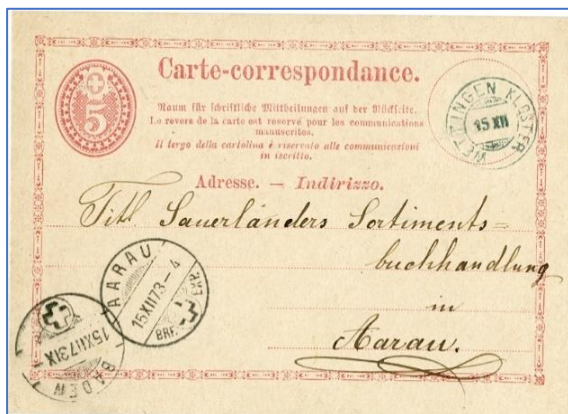 Carte-correspondance.
5
Raum für schriftliche Mittheilungen auf der Rückseite.
Le revers de la carte est réservé pour les communications
manuscrites.
Il tergo della cartolina è riservato alle communicazioni
in iscritto.
WETTINGEN KLOSTER
15 XII
Adresse. — Indirizzo.
Titl Sauerländers Sortiments=
buchhandlung
in
Aarau.
AARAU
15XII73-4
BRF. EXP.
BADEN
15XII73IX